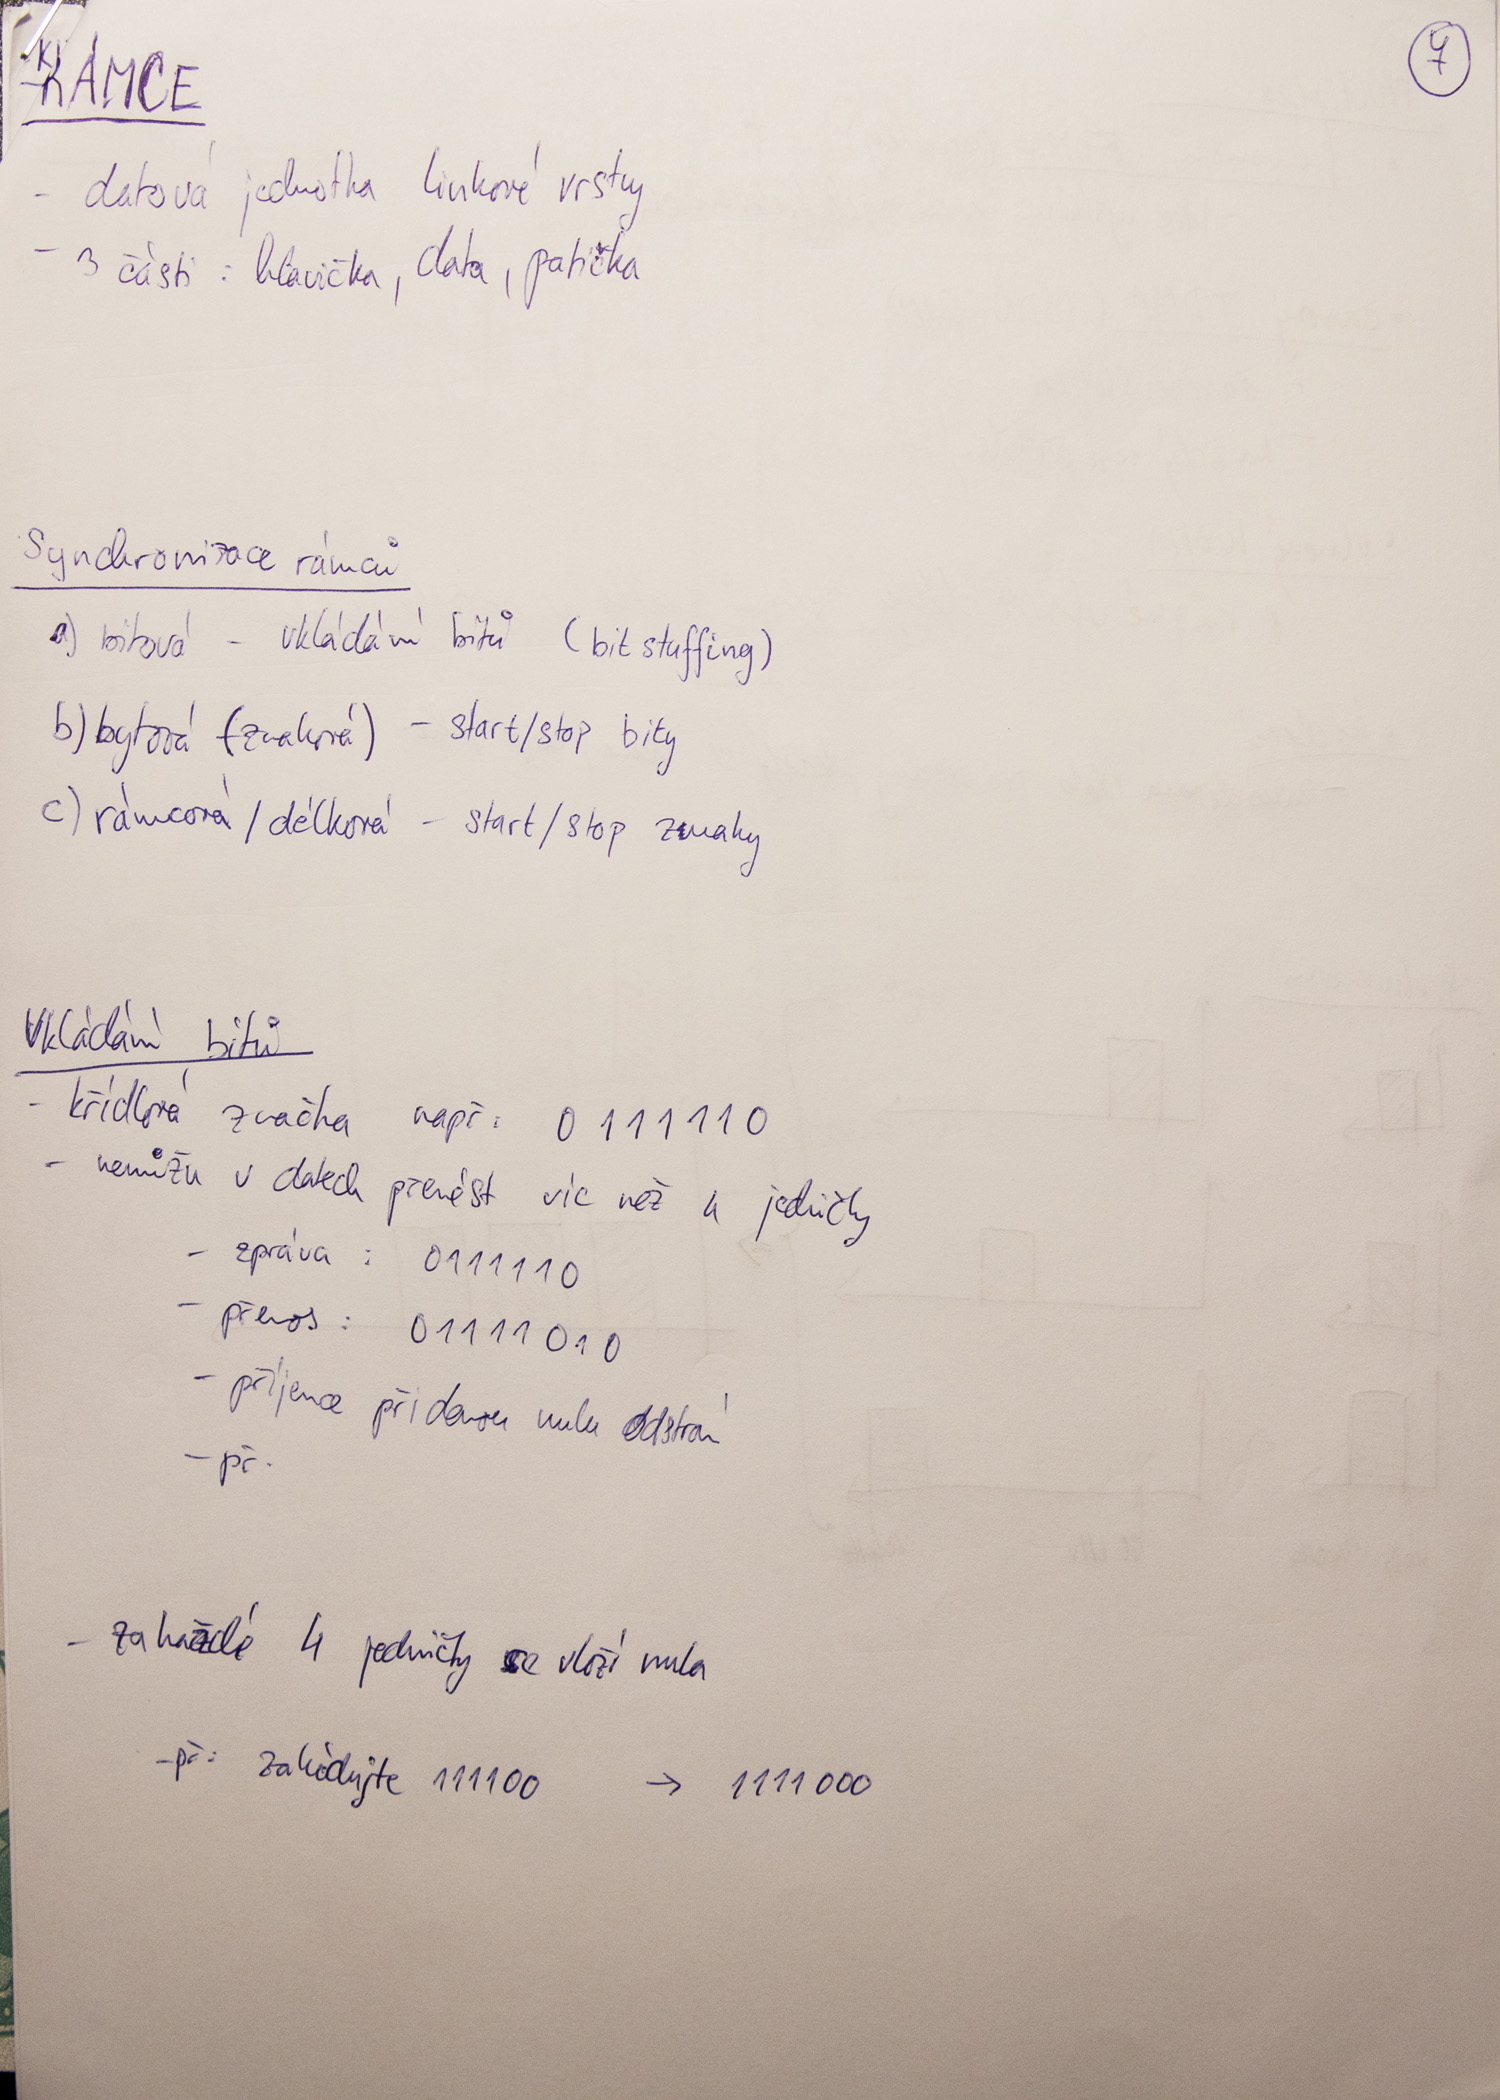 7
RÁMCE
- datová jednotka linkové vrstvy
- 3 části : hlavička, data, patička
Synchronizace rámců
a) bitová - vkládání bitů (bit stuffing)
b) bytová (znaková) - start/stop bity
c) rámcová/délková - start/stop znaky
Vkládání bitů
- křídlová značka např: 0 1 1 1 1 1 0
- nemůžu v datech přenést víc než 4 jedničky
- zpráva : 0111110
- přenos : 01111010
- příjemce přidanou nulu odstraní
- př.
- za každé 4 jedničky se vloží nula
- př: zakódujte 111100 → 1111000